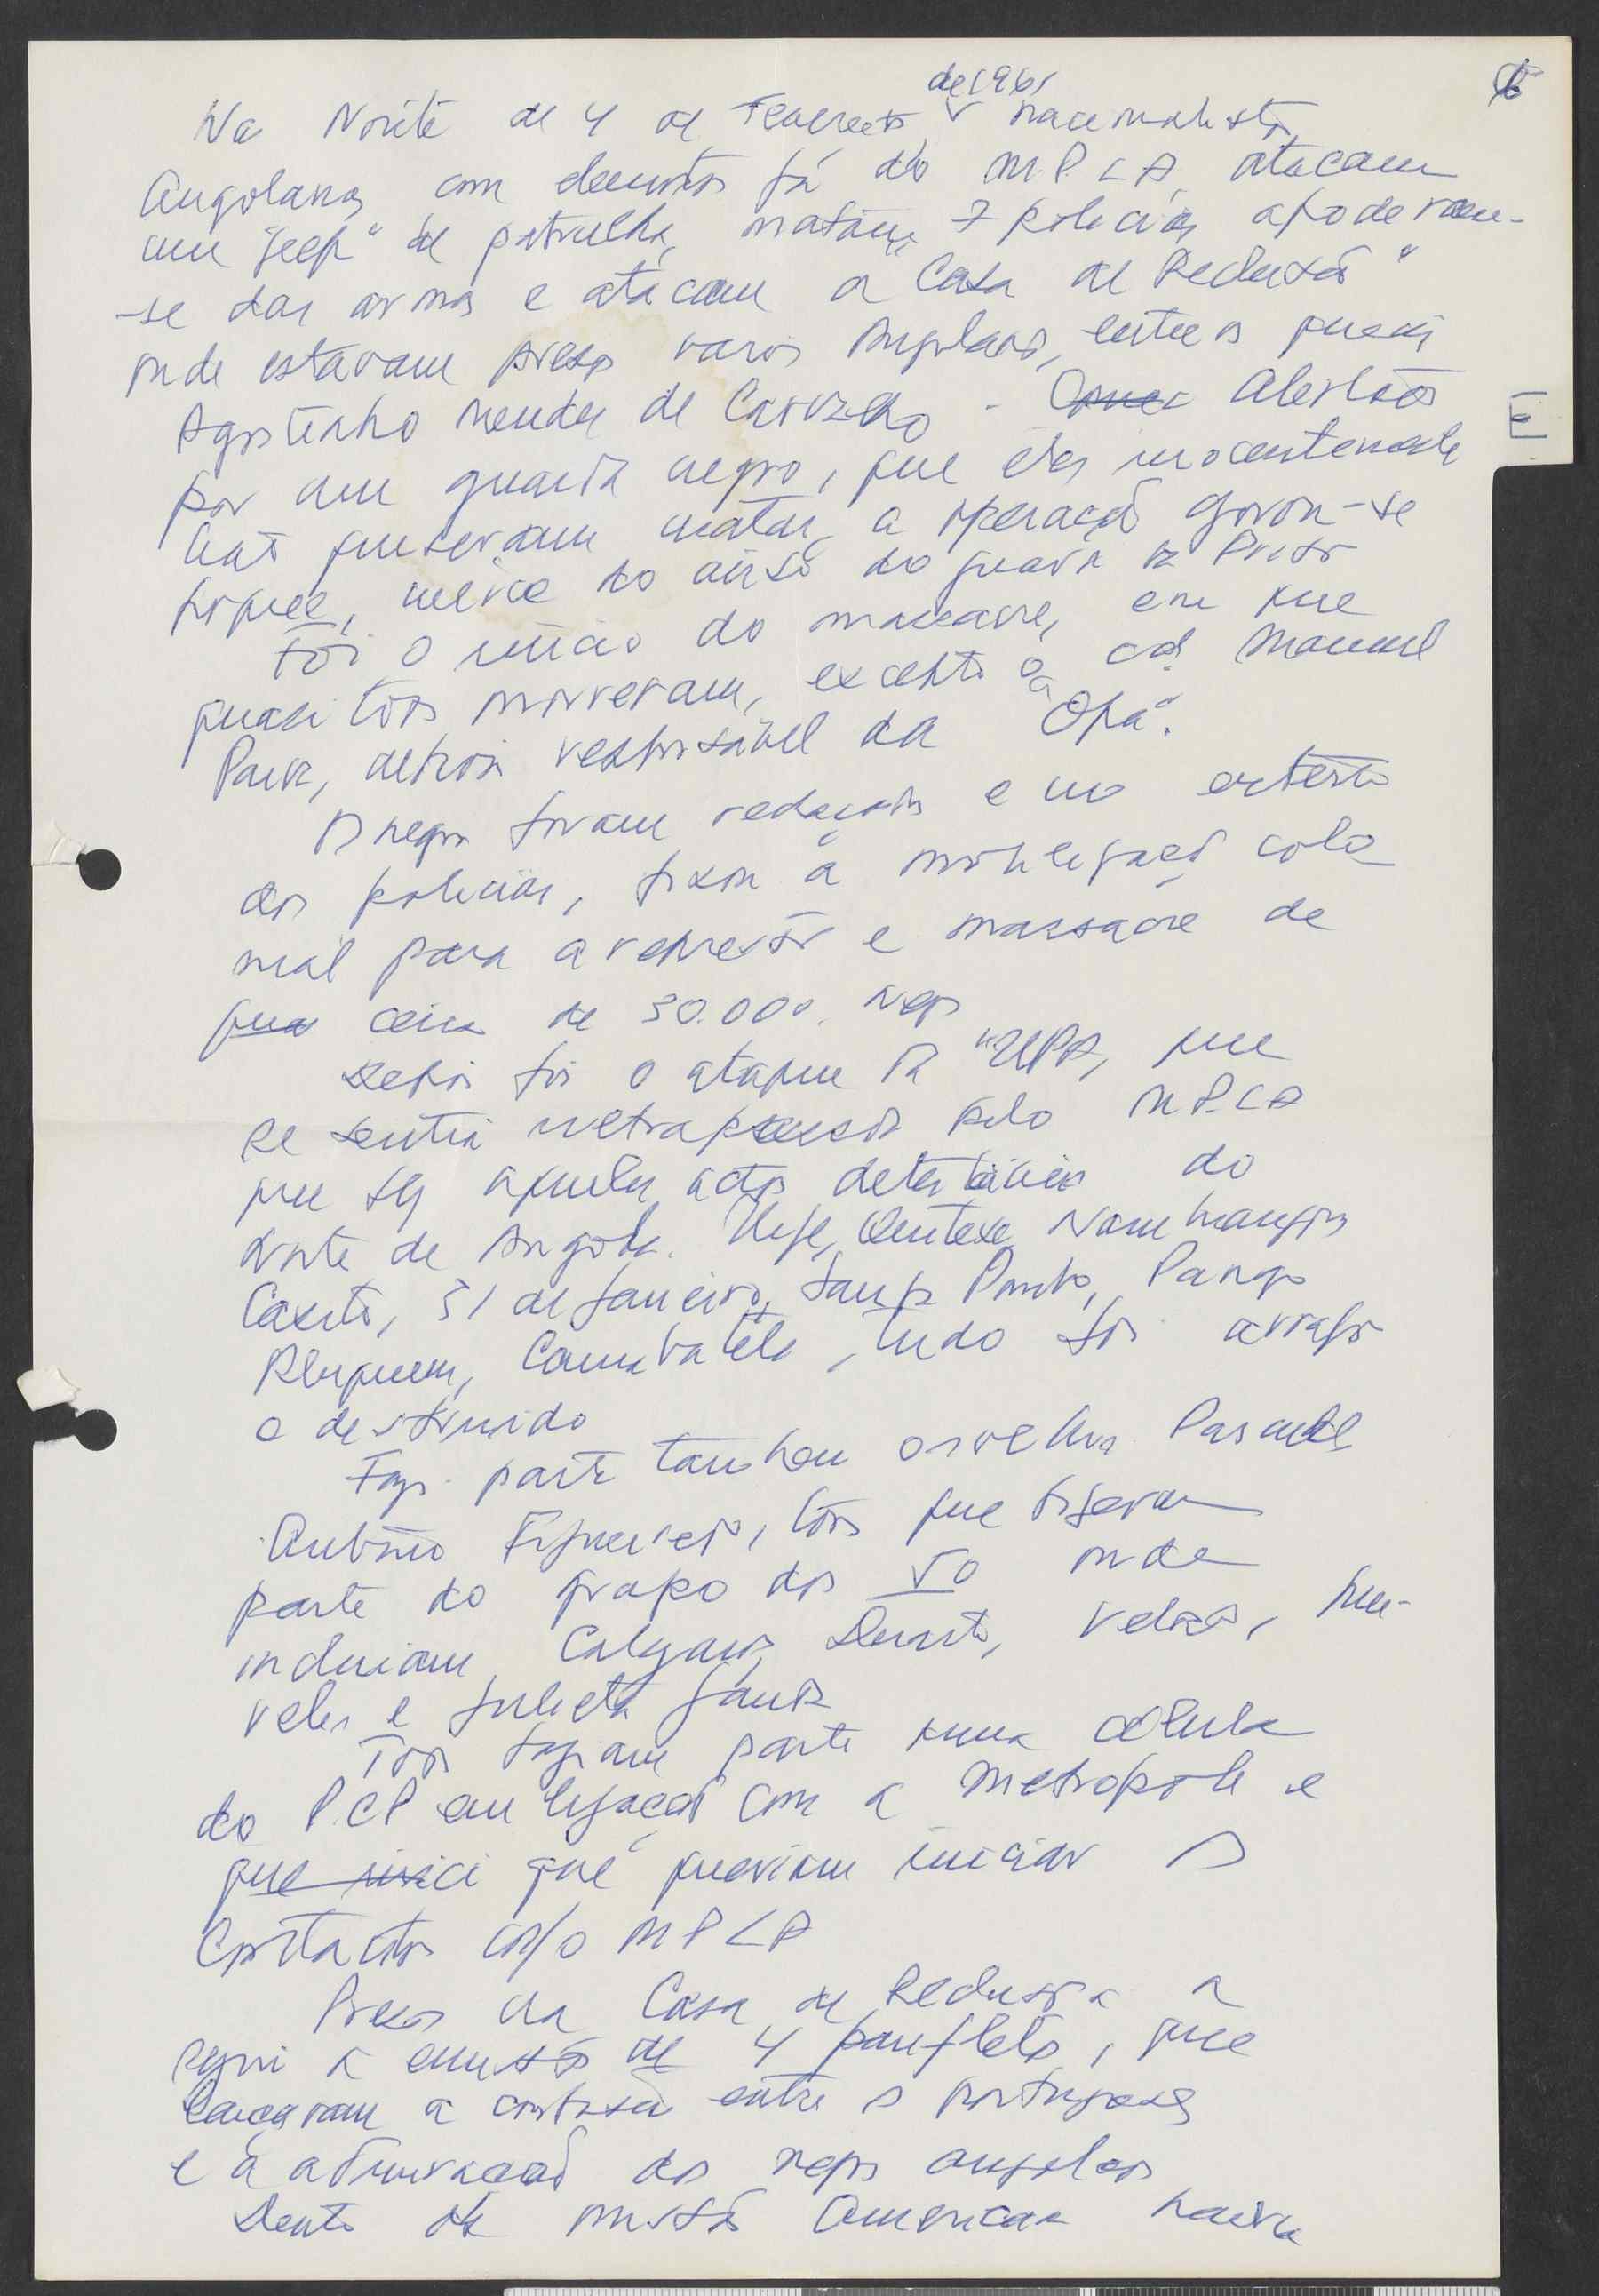 de 1961
Na Noite de 4 de Fevereiro nacionalistas
Angolanos com elementos já do M.P.L.A, atacam
um "jeep" de patrulha, matam 7 policias apoderam-
-se das armas e atacam a Casa de Reclusão"
onde estavam presos varios Angolanos, entre os quais
Agostinho Mendes de Carvalho - Alertados
por um guarda negro, que eles inocentemente
não quiseram matar, a operação gorou-se
porque, merce do aviso do guarda da Prisão
Foi o inicio do massacre, em que
quasi todos morreram, excepto o Manuel
depois responsável da "Opa".
Os negros foram e no enterro
dos policias, a mobilização colo
nial para a repressão e massacre de
cerca de 30.000 negros
Depois foi o ataque da "UPA, que
se sentiu ultrapassada pelo M.P.L.A
que fez aqueles actos detestáveis do
Norte de Angola. Uige, Quitexe Nambuangongo
Caxito, 31 de Janeiro, Santa Pombo, Pango
Aluquem, Camabatela, tudo foi arrasado
e destruido
Faz parte tambem
António Figueiredo, todos que fizeram
parte do grupo dos 50 onde
incluiam Calazans Duarte, Veloso, Mei-
reles e Julieta Gandra
Todos faziam parte numa celula
do P.C.P em ligação com a Metropole e
que inici que queriam iniciar os
contactos c/o M P L A
Presos na Casa de Reclusão a
seguir a emissão de 4 panfletos, que
lançaram a confusão entre os portugueses
e a admiração dos negros angolanos
Dentro da missão Americana havia